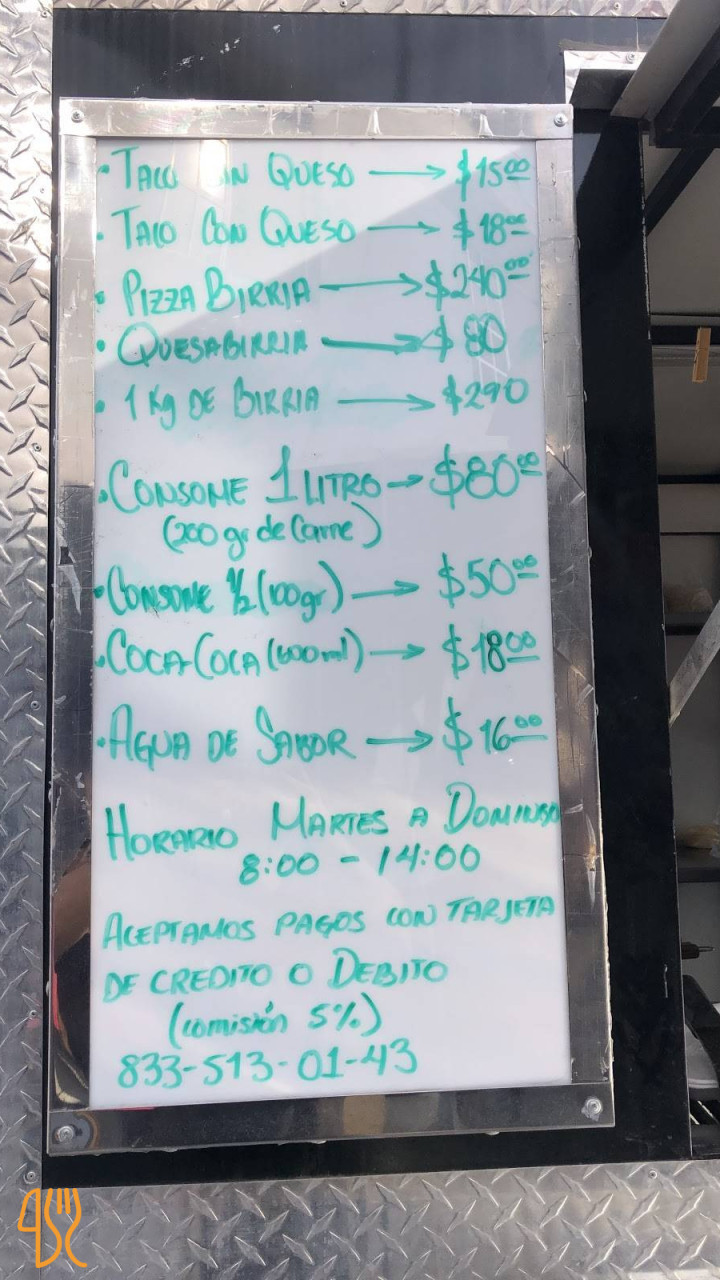 · TACO QUESO → $15.00
· TACO CON QUESO → $18.00
· PIZZA BIRRIA → $240.00
· QUESABIRRIA → $80
· 1 Kg DE BIRRIA → $290
· CONSOME 1 LITRO → $80.00
(200 gr de Carne)
· CONSOME 1/2 (100gr) → $50.00
· COCA-COCA (600ml) → $18.00
· AGUA DE SABOR → $16.00
HORARIO MARTES A DOMINGO
8:00 - 14:00
ACEPTAMOS PAGOS CON TARJETA
DE CREDITO O DEBITO
(comisión 5%)
833-513-01-43